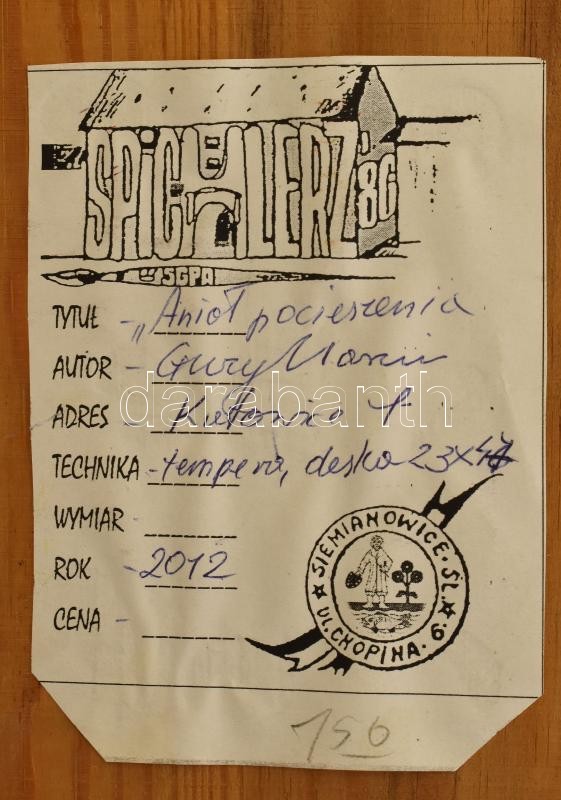 SPICHLERZ '86
SGPA
TYTUŁ - „Anioł pocieszenia
AUTOR - Gury Marcin
ADRES - Katowice
TECHNIKA - tempera, deska 23x47
WYMIAR -
ROK - 2012
CENA -
SIEMIANOWICE ŚL.
UL. CHOPINA 6
156
darabanth